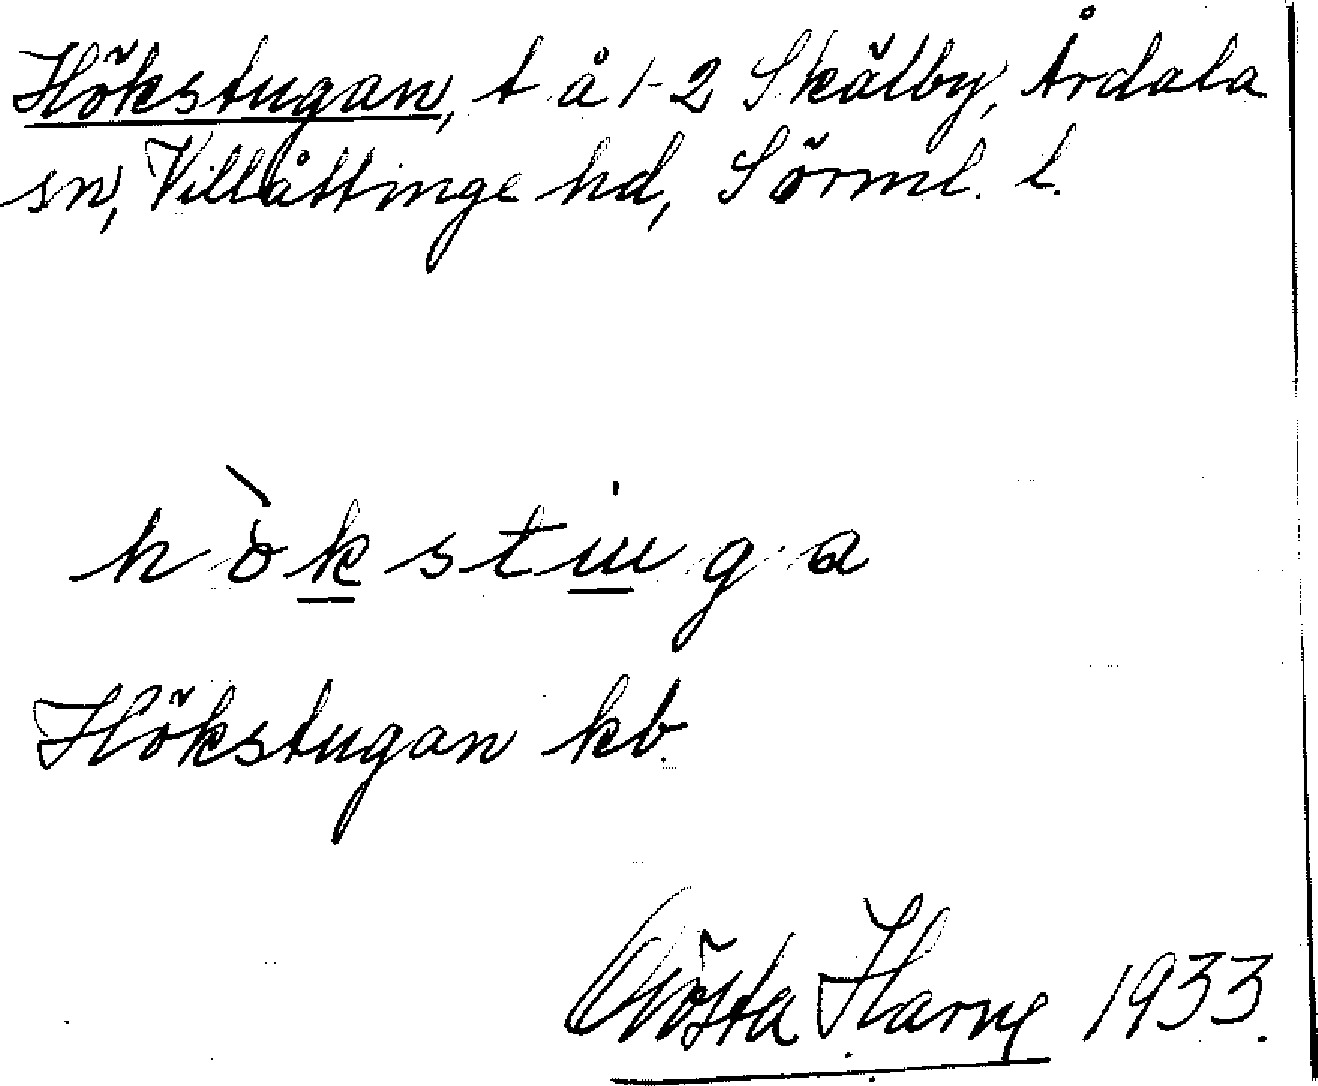 Hökstugan, t å 1-2 Skälby, Årdala
sn, Villåttinge hd, Sörml. l.
hökstuga
Hökstugan kb.
Gösta Harne 1933.